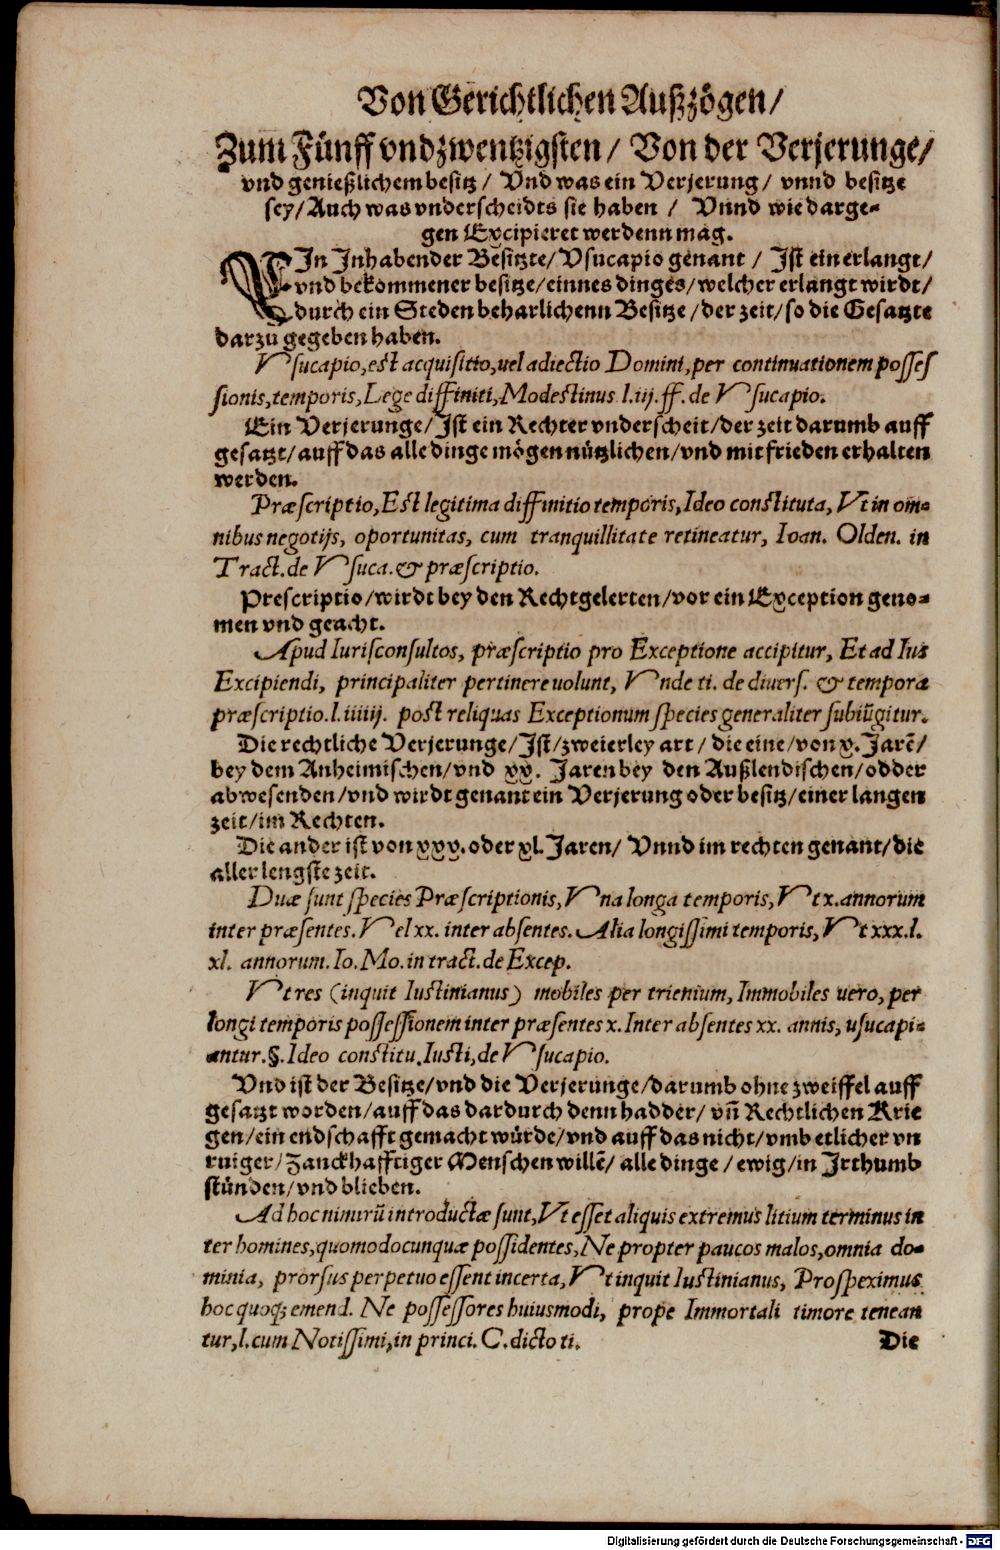 Von Gerichtlichen Außzögen/
Zum Fünff vnd zwentzigsten/ Von der Verjerunge/
vnd genießlichem besitz/ Vnd was ein Verjerung/ vnnd besitze
sey/ Auch was vnderscheidts sie haben / Vnnd wie darge-
gen Excipieret werdenn mag.
EIn Inhabender Besitzte/ Vsucapio genant / Ist ein erlangt/
vnd bekommener besitze/ einnes dinges/ welcher erlangt wirdt/
durch ein Steden beharlichenn Besitze /der zeit/ so die Gesatzte
darzu gegeben haben.
Vsucapio, est acquisitio, uel adiectio Domini, per continuationem posses
sionis, temporis, Lege diffiniti, Modestinus l.iij.ff. de Vsucapio.
Ein Verjerunge/ Ist ein Rechter vnderscheit/ der zeit darumb auff
gesatzt/ auff das alle dinge mögen nützlichen/ vnd mit frieden erhalten
werden.
Præscriptio, Est legitima diffinitio temporis, Ideo constituta, Vt in om-
nibus negotijs, oportunitas, cum tranquillitate retineatur, Ioan. Olden. in
Tract. de Vsuca. & præscriptio.
Prescriptio/ wirdt bey den Rechtgelerten/ vor ein Exception geno-
men vnd geacht.
Apud Iurisconsultos, præscriptio pro Exceptione accipitur, Et ad Ius
Excipiendi, principaliter pertinere uolunt, Vnde ti. de diuers. & tempora
præscriptio. l.iiiij. post reliquas Exceptionum species generaliter subiũgitur.
Die rechtliche Verjerunge/ Ist/ zweierley art / die eine/ von x. Jarẽ/
bey dem Anheimischen/ vnd xx. Jaren bey den Außlendischen/ odder
abwesenden/ vnd wirdt genant ein Verjerung oder besitz/ einer langen
zeit/ im Rechten.
Die ander ist von xxx. oder xl. Jaren/ Vnnd im rechten genant/ die
aller lengste zeit.
Duæ sunt species Præscriptionis, Vna longa temporis, Vt x. annorum
inter præsentes. Vel xx. inter absentes. Alia longissimi temporis, Vt xxx. l.
xl. annorum. Io. Mo. in tract. de Excep.
Vt res (inquit Iustinianus) mobiles per trienium, Immobiles uero, per
longi temporis possessionem inter præsentes x. Inter absentes xx. annis, usucapi-
antur. §. Ideo constitu. Iusti, de Vsucapio.
Vnd ist der Besitze/ vnd die Verjerunge/ darumb ohne zweiffel auff
gesatzt worden/ auff das dardurch denn hadder/ vñ Rechtlichen Krie
gen/ ein endschafft gemacht würde/ vnd auff das nicht/ vmb etlicher vn
ruiger/ Zanckhafftiger Menschen willẽ/ alle dinge / ewig/ in Irthumb
stünden/ vnd blieben.
Ad hoc nimirũ introductæ sunt, Vt esset aliquis extremus litium terminus in
ter homines, quomodocunquæ possidentes, Ne propter paucos malos, omnia do-
minia, prorsus perpetuo essent incerta, Vt inquit Iustinianus, Prospeximus
hoc quoq; emend. Ne possessores huiusmodi, prope Immortali timore tenean
tur, l. cum Notissimi, in princi. C. dicto ti.
Die
Digitalisierung gefördert durch die Deutsche Forschungsgemeinschaft - DFG